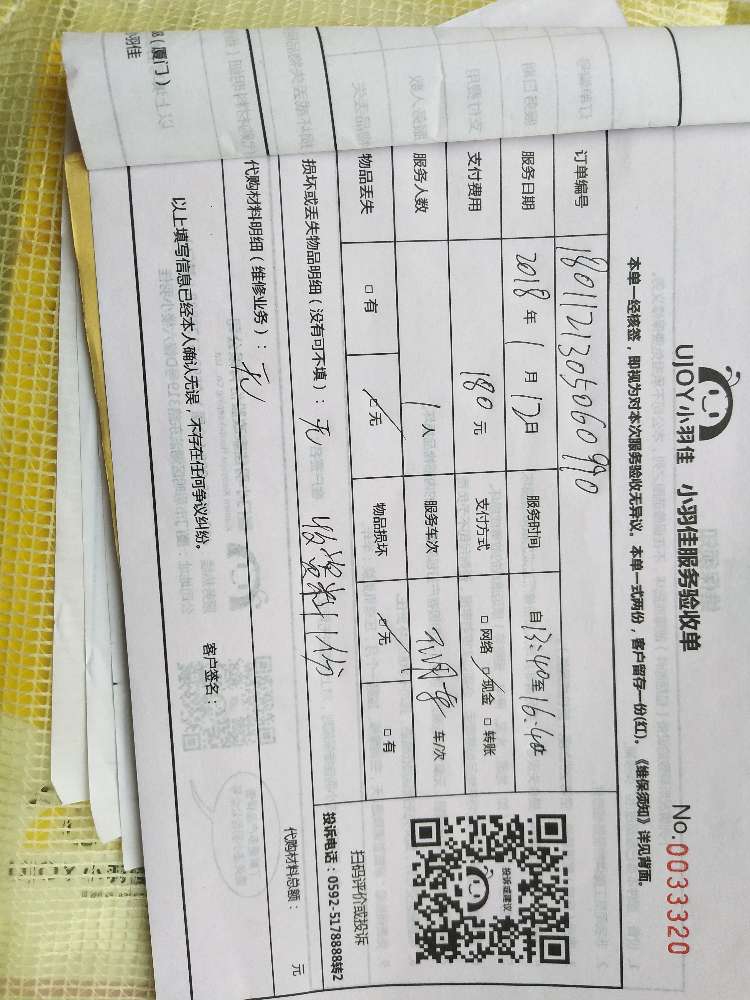 UJOY小羽佳 小羽佳服务验收单
No.0033320
本单一经核签，即视为对本次服务验收无异议。本单一式两份，客户留存一份(红)。《维保须知》详见背面。
订单编号 1801121305060990
服务日期 2018 年 1 月 12 日 服务时间 自 13:40 至 16:40
支付费用 180 元 支付方式 □网络 ☑现金 □转账
服务人数 1 人 服务车次 车/次
物品丢失 □有 ☑无 物品损坏 ☑无 □有
损坏或丢失物品明细（没有可不填）： 无 收资料1份
代购材料明细（维修业务）： 无
代购材料总额： 元
以上填写信息已经本人确认无误，不存在任何争议纠纷。
客户签名：
投诉或建议
扫码评价或投诉
投诉电话：0592-5178888转2
（厦门）
小羽佳